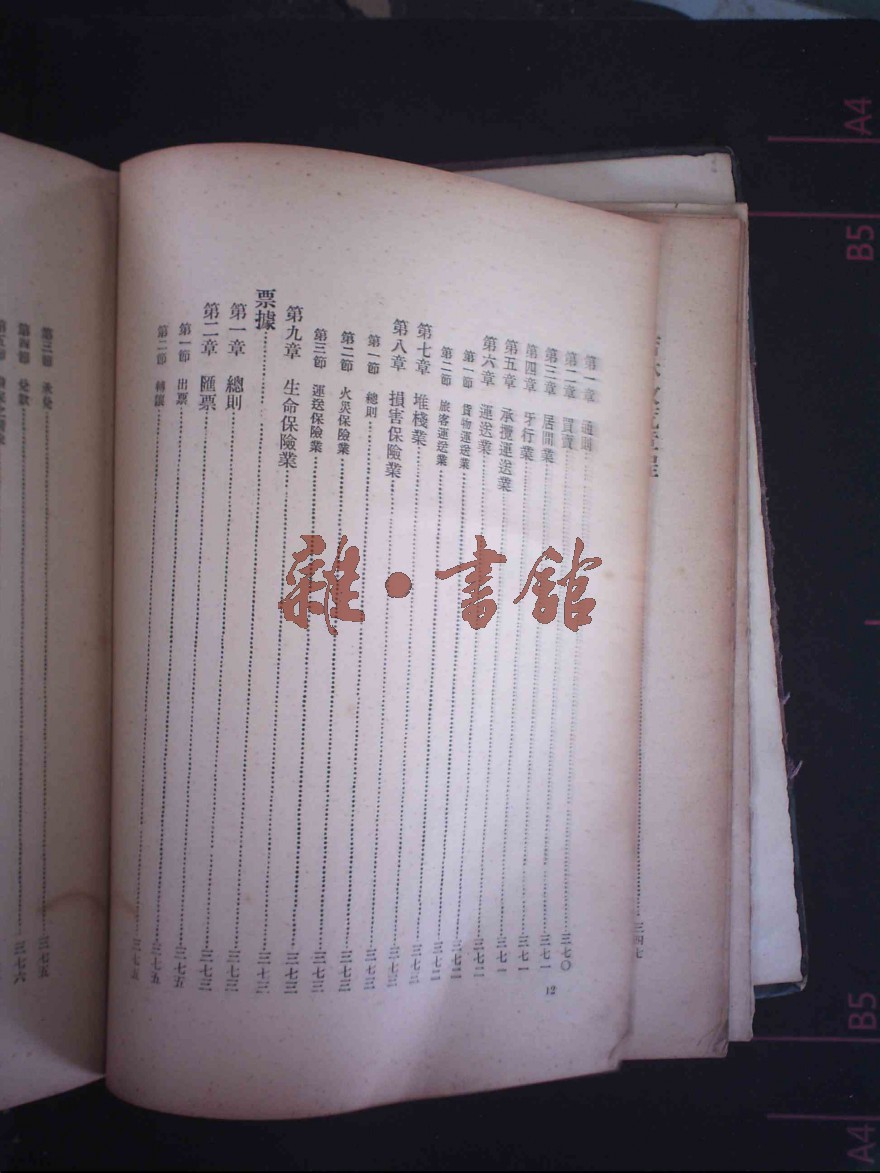 三四七
第一章 通則……三七〇
第二章 買賣……三七一
第三章 居間業……三七一
第四章 牙行業……三七一
第五章 承攬運送業……三七二
第六章 運送業……三七二
第一節 貨物運送業……三七二
第二節 旅客運送業……三七二
第七章 堆棧業……三七三
第八章 損害保險業……三七三
第一節 總則……三七三
第二節 火災保險業……三七三
第三節 運送保險業……三七三
第九章 生命保險業……三七三
票據……三七三
第一章 總則……三七三
第二章 匯票……三七五
第一節 出票……三七五
第二節 轉讓……三七五
12
第三節 承兌……三七五
第四節 兌款……三七六
第五節
雜·書館
A4
B5
B5
A4